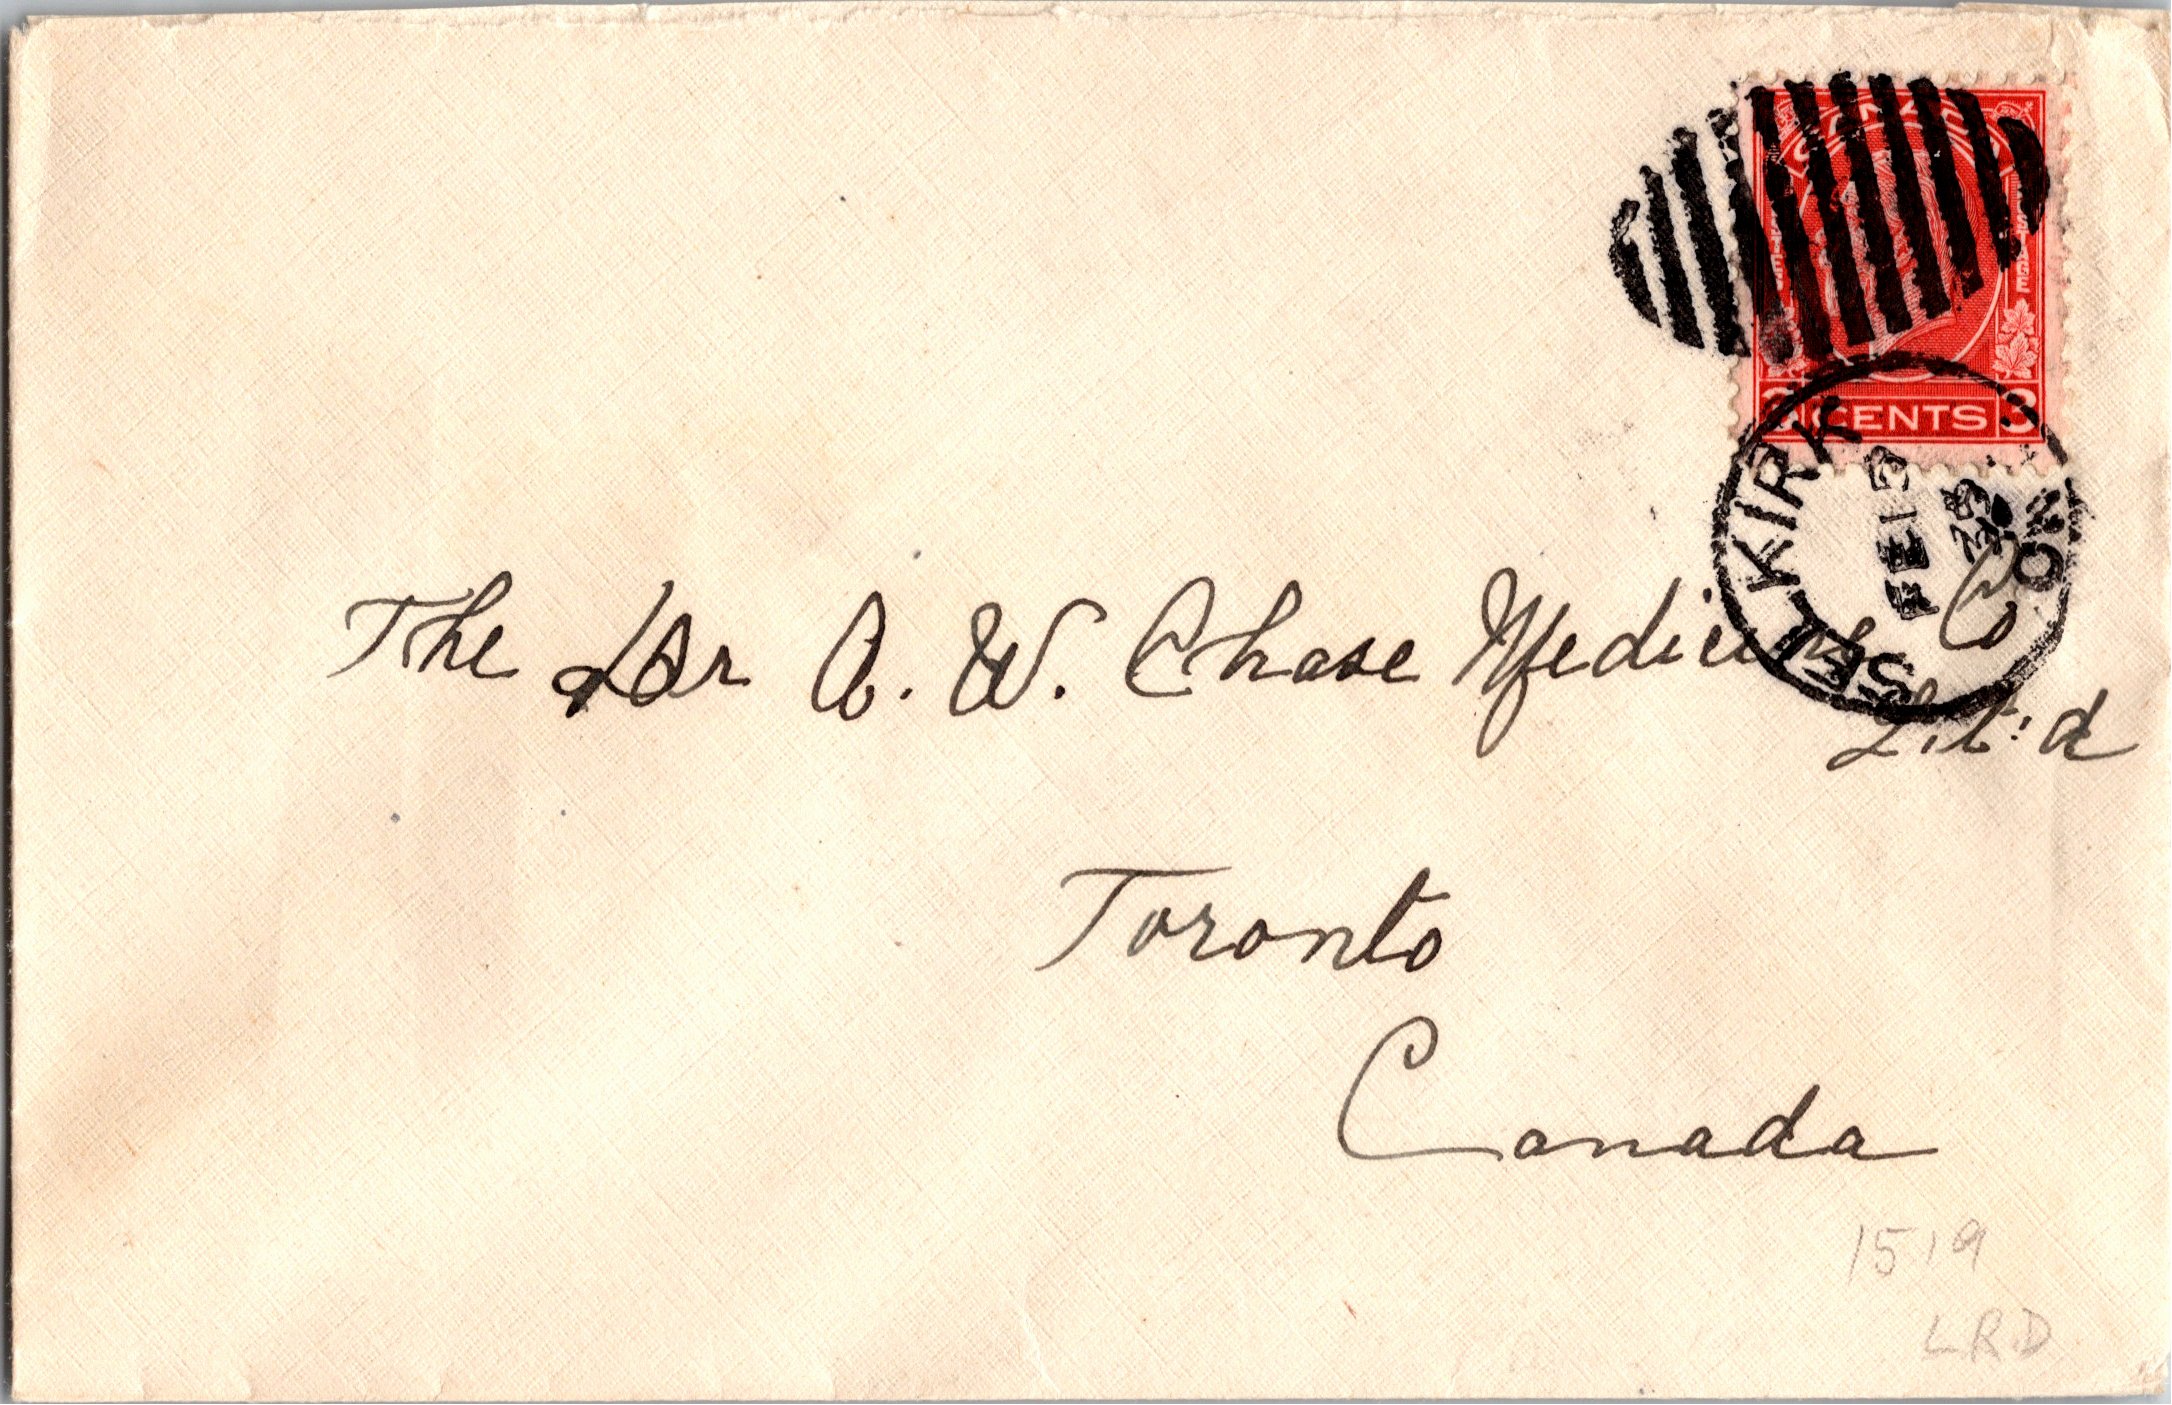 CANADA
POSTAGE
3 CENTS 3
SELKIRK
FE 13
35
ONT
The Dr A. W. Chase Medicine Co
L.t:d
Toronto
Canada
1519
LRD